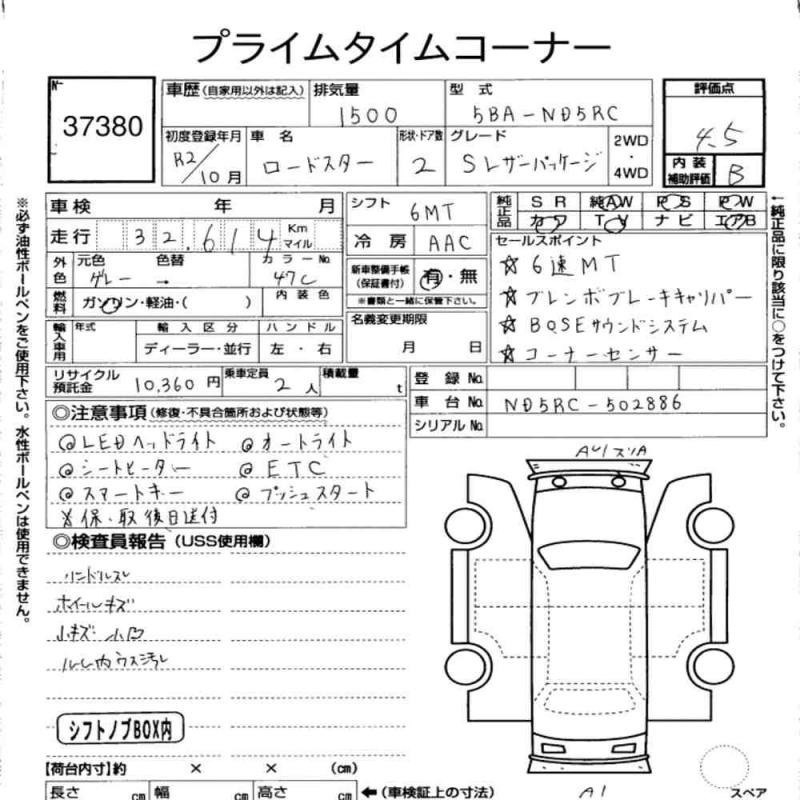 プライムタイムコーナー
No
37380
車歴 (自家用以外は記入)
排気量
1500
型式
5BA-ND5RC
評価点
4.5
初度登録年月
R2/10月
車名
ロードスター
形状・ドア数
2
グレード
Sレザーパッケージ
2WD
・
4WD
内装
補助評価
B
車検 年 月
シフト
6MT
純正品
SR 純AW PS PW
カワ TV ナビ エアB
走行 32,614 Km
マイル
冷房 AAC
セールスポイント
☆6速MT
☆ブレンボブレーキキャリパー
☆BOSEサウンドシステム
☆コーナーセンサー
外色
元色 色替 カラーNo
グレー → 47C
新車整備手帳
(保証書付)
有・無
※書類と一緒に保管下さい。
燃料
ガソリン・軽油・( )
内装色
名義変更期限
月 日
輸入車用
年式
輸入区分
ハンドル
ディーラー・並行
左・右
リサイクル
預託金
10,360円
乗車定員
2人
積載量
t
登録No.
車台No. ND5RC-502886
シリアルNo.
◎注意事項 (修復・不具合箇所および状態等)
◎LEDヘッドライト ◎オートライト
◎シートヒーター ◎ETC
◎スマートキー ◎プッシュスタート
※保、取後日送付
◎検査員報告 (USS使用欄)
ハンドルスレ
ホイールキズ
小キズ 小凹
シフトノブBOX内
【荷台内寸】約 × × (cm)
長さ cm 幅 cm 高さ cm ←(車検証上の寸法)
A1
スペア
※必ず油性ボールペンをご使用下さい。水性ボールペンは使用できません。
←純正品に限り該当に○をつけて下さい。